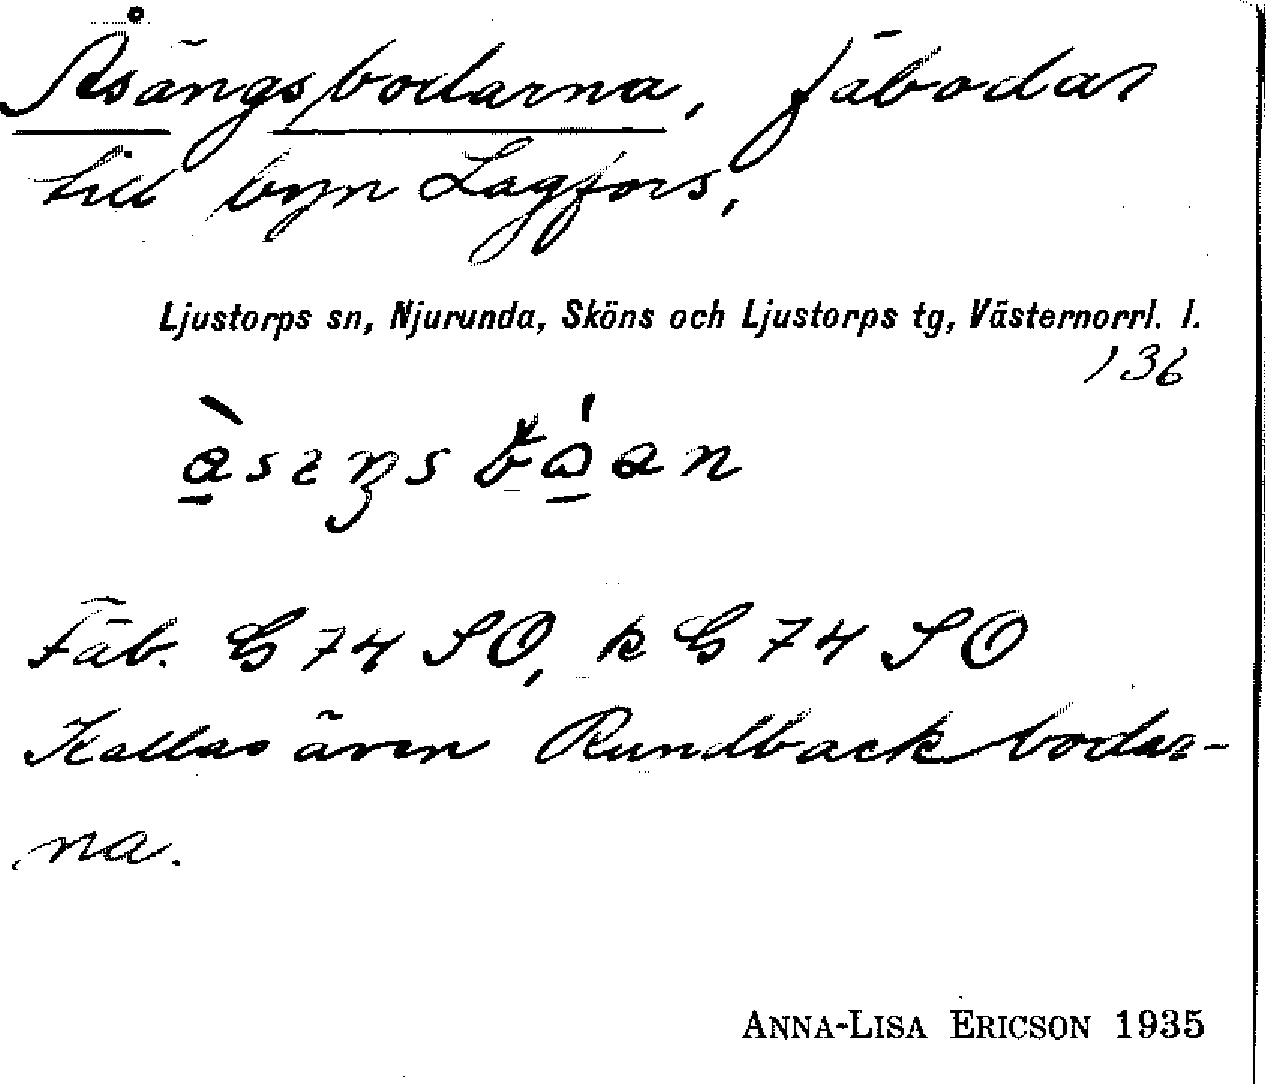 Åsängsbodarna, fäbodar
till byn Lagfors,
Ljustorps sn, Njurunda, Sköns och Ljustorps tg, Västernorrl. l.
136
Fäb. G 74 SO, k G 74 SO
Kallas även Rundbackbodar-
na.
ANNA-LISA ERICSON 1935